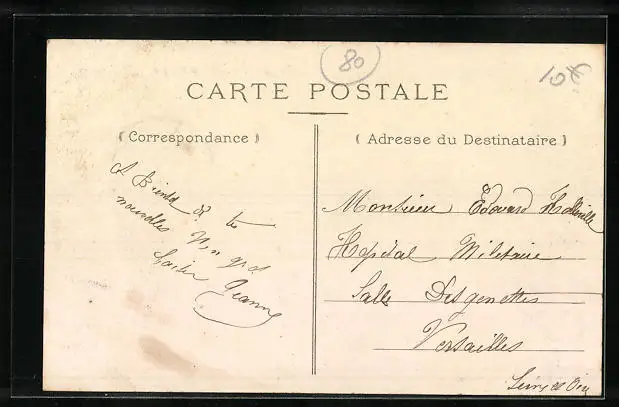 80
10€
CARTE POSTALE
( Correspondance )
( Adresse du Destinataire )
A Bientôt de te
nouvelles Un gd
baiser Jeanne
Monsieur Edouard
Hopital Militaire
Salle Desgenettes
Versailles
Seine et Oise